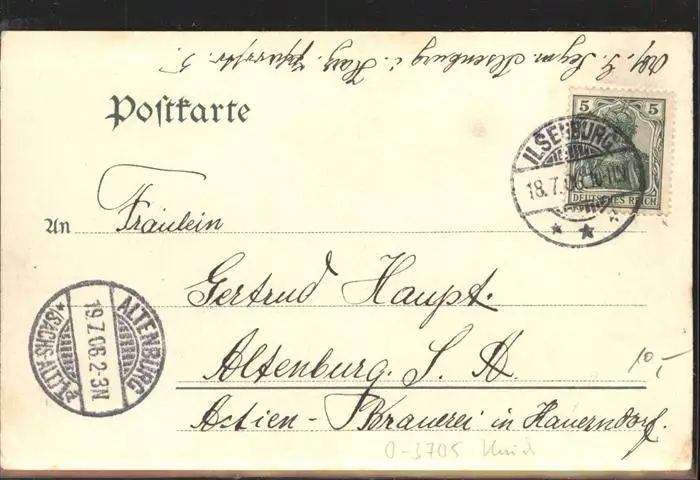 Ilsenburg i. Harz
5.
Postkarte
5 5
DEUTSCHES REICH
ILSENBURG
18.7.06. 10-11V
* *
An Fräulein
Gertrud Haupt.
Altenburg. S. A.
Actien-Brauerei in Kauerndorf.
ALTENBURG
19.7.06.2-3N
*(SACHS.ALT.)*
10,-
0-3705